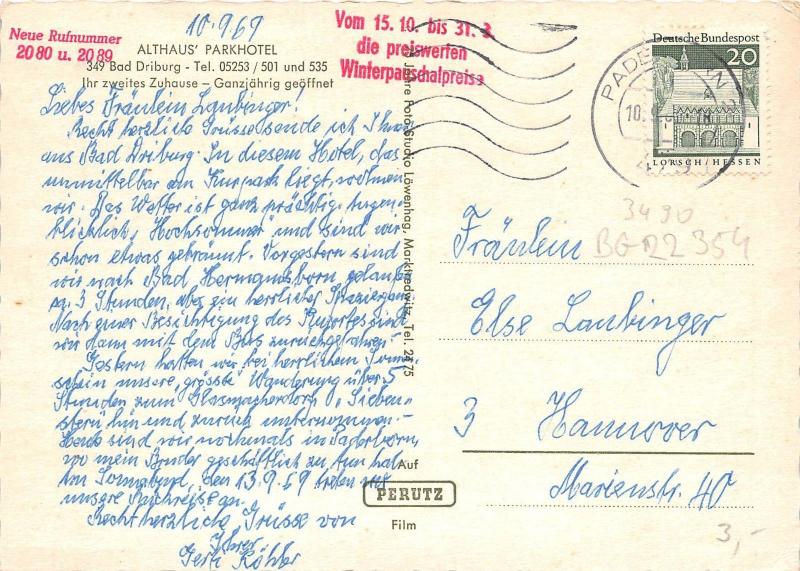 10.9.69
Neue Rufnummer
2080 u. 2089
ALTHAUS' PARKHOTEL
349 Bad Driburg - Tel. 05253/501 und 535
Ihr zweites Zuhause – Ganzjährig geöffnet
Vom 15. 10. bis 31. 3.
die preiswerten
Winterpauschalpreise
Deutsche Bundespost
20
LORSCH/HESSEN
PADERBORN
10.
Liebes Fräulein Laubinger!
Recht herzliche Grüsse sende ich Ihnen
aus Bad Driburg. In diesem Hotel, das
unmittelbar am Kurpark liegt, wohnen
wir. Das Wetter ist ganz prächtig. Augen-
blicklich „Hochsommer" und sind wir
schon etwas gebräunt. Vorgestern sind
wir nach Bad Hermannsborn gelaufen
ca. 3 Stunden, aber ein herrlicher Spaziergang.
Nach einer Besichtigung des Kurortes sind
wir dann mit dem Bus zurückgefahren.
Gestern hatten wir bei herrlichem Sonnen-
schein unsere „grösste" Wanderung über 5
Stunden zum Glasmacherdorf „Sieben-
stern" hin und zurück unternommen.-
Heute sind wir nochmals in Paderborn,
wo mein Bruder geschäftlich zu tun hat.
Am Sonnabend, den 13.9.69 treten wir
unsere Rückreise an.
Recht herzliche Grüsse von
Ihrer
Gerti Köhler
Jahre Foto-Studio Löwenhag, Marktredwitz, Tel. 2475
Auf
PERUTZ
Film
3490
BG 22 354
Fräulein
Else Laubinger
3 Hannover
Marienstr. 40
3,-